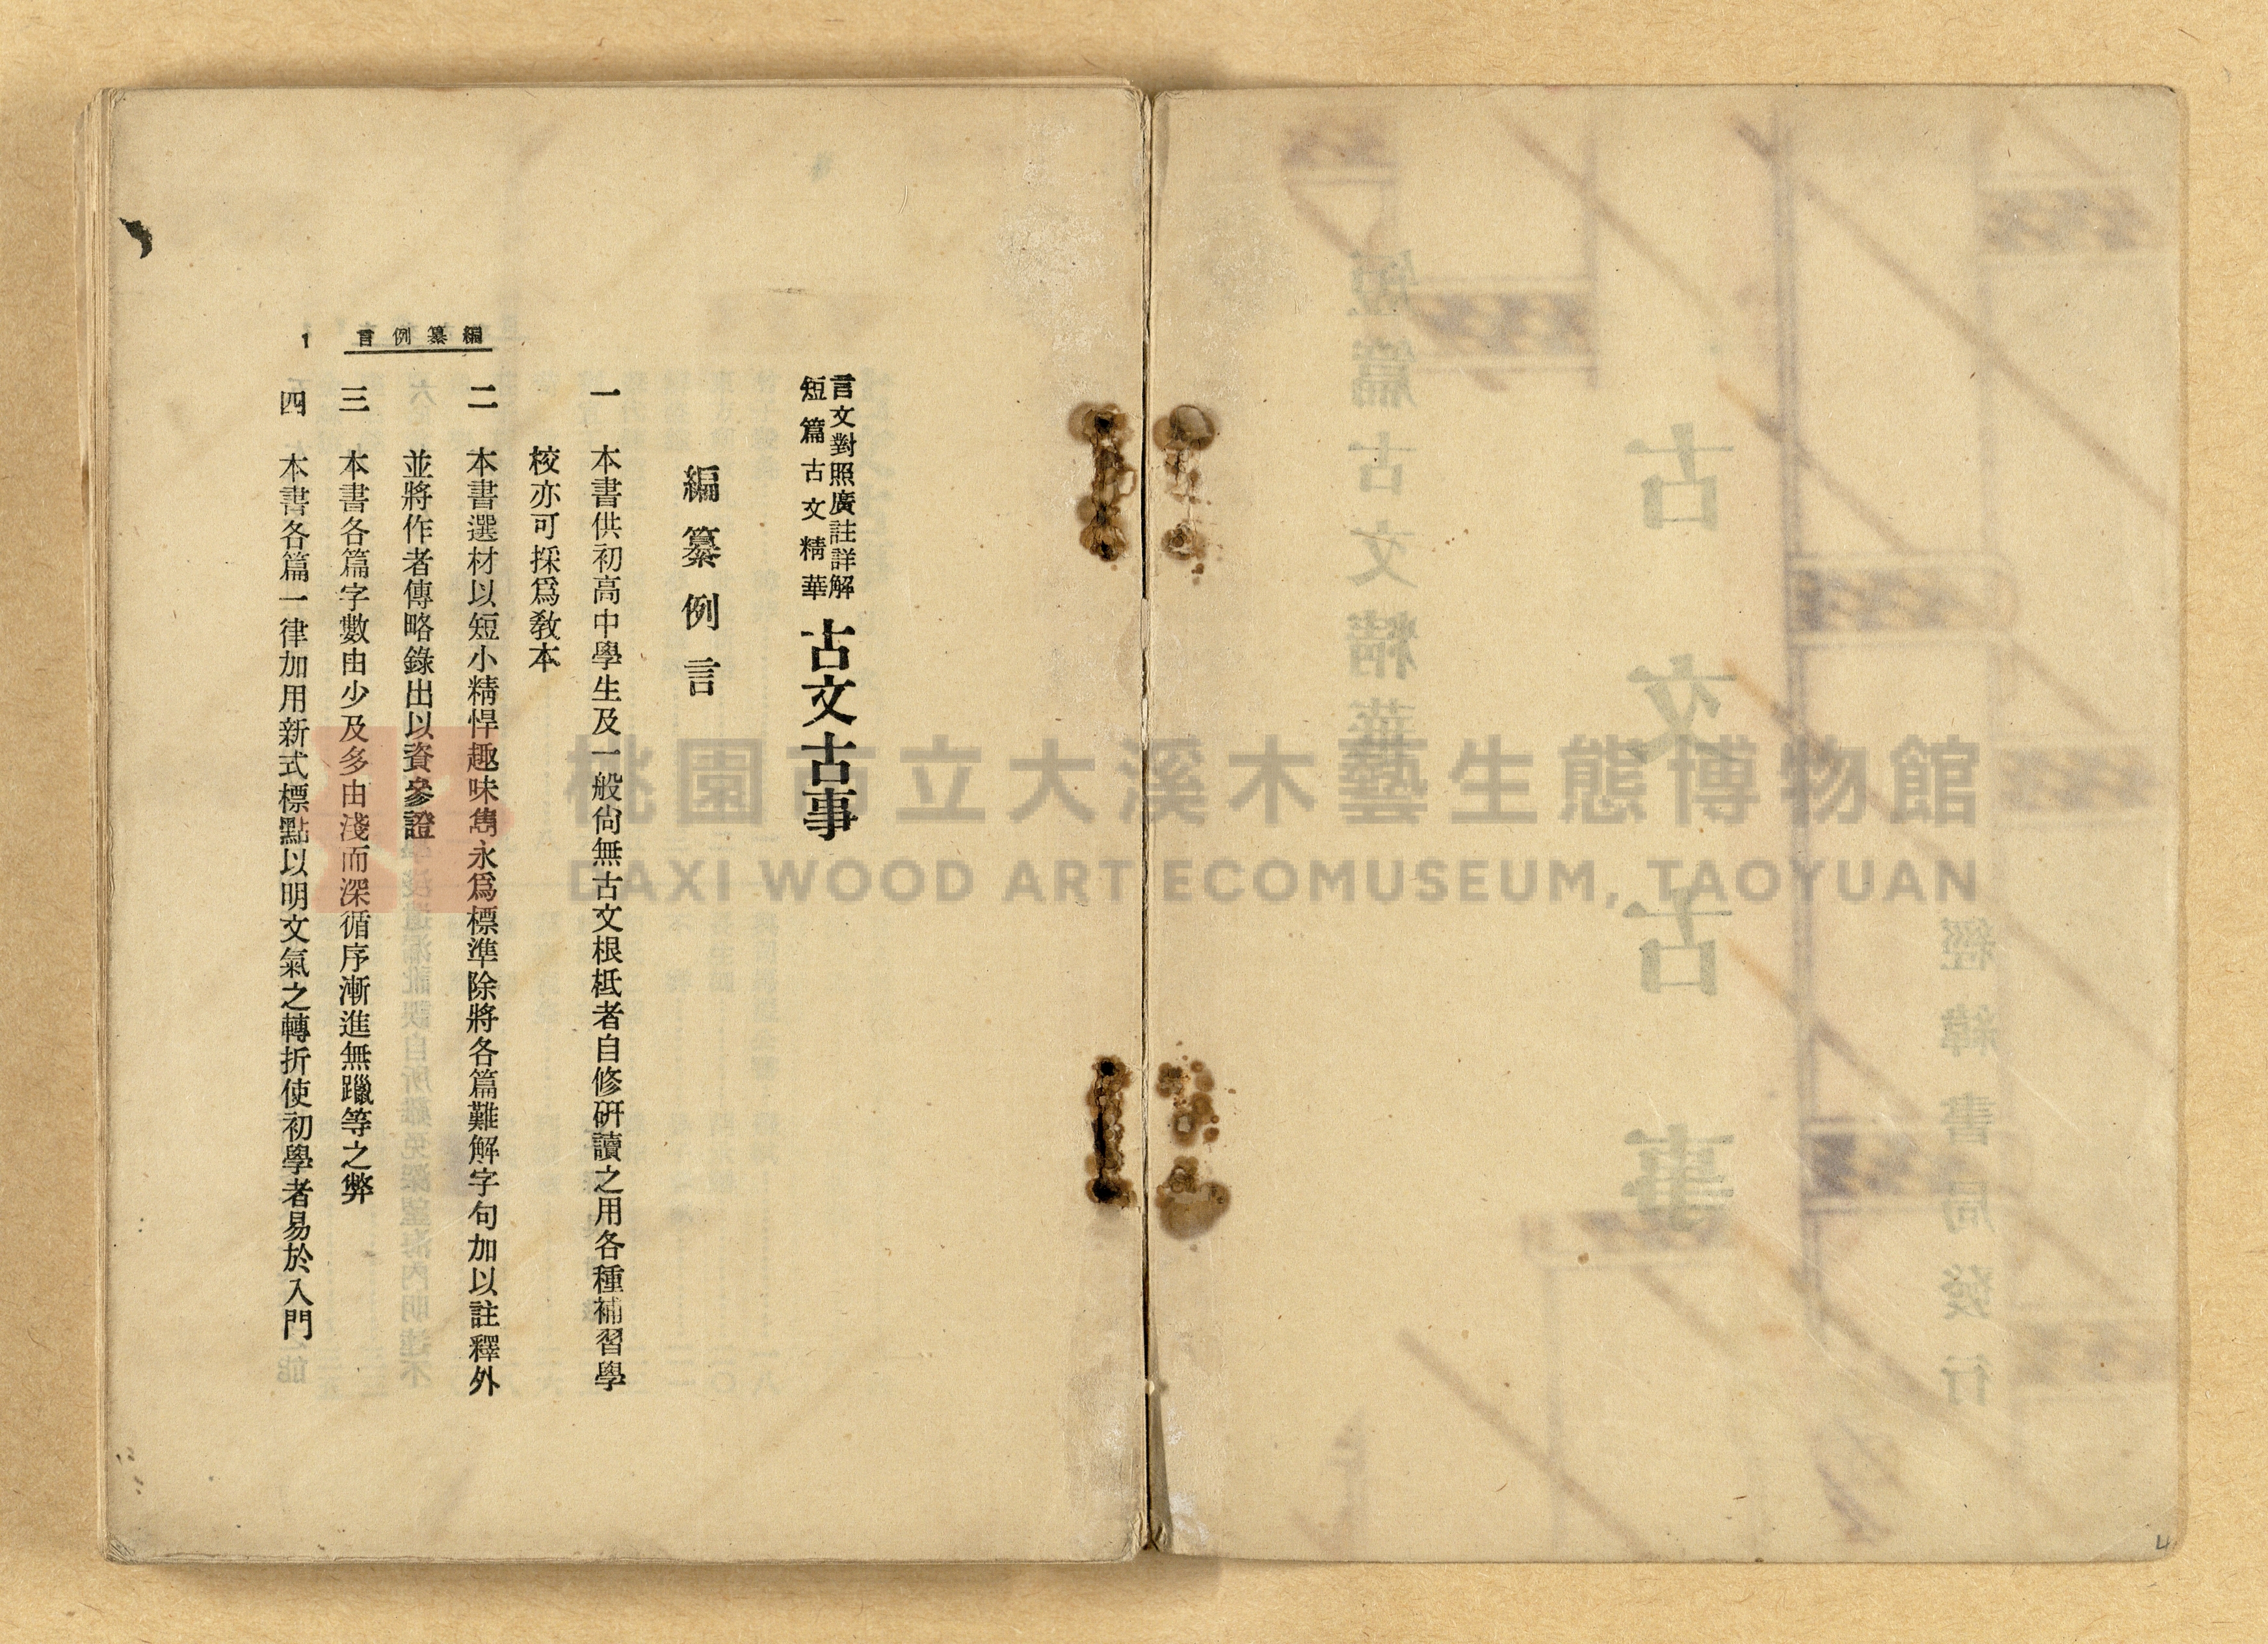 言文對照廣註詳解
短篇古文精華
古文古事
編纂例言
一 本書供初高中學生及一般尙無古文根柢者自修硏讀之用各種補習學
校亦可採爲敎本
二 本書選材以短小精悍趣味雋永爲標準除將各篇難解字句加以註釋外
並將作者傳略錄出以資參證
三 本書各篇字數由少及多由淺而深循序漸進無躐等之弊
四 本書各篇一律加用新式標點以明文氣之轉折使初學者易於入門
編纂例言
1
經緯書局發行
古文古事
短篇古文精華
桃園市立大溪木藝生態博物館
DAXI WOOD ART ECOMUSEUM, TAOYUAN
4